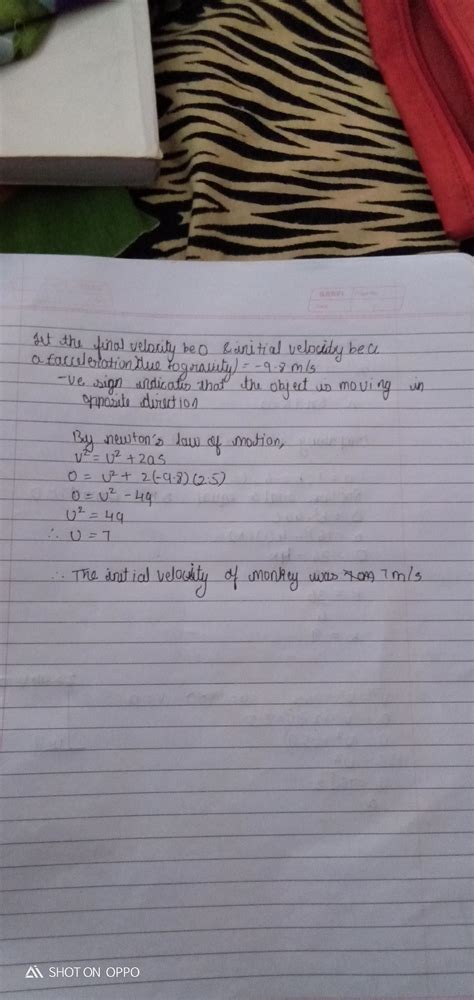 Let the final velocity be 0 & initial velocity be u
a (acceleration due to gravity) = -9.8 m/s
-ve sign indicates that the object is moving in
opposite direction
By newton's law of motion,
v² = u² + 2as
0 = u² + 2(-9.8)(2.5)
0 = u² - 49
u² = 49
∴ u = 7
∴ The initial velocity of monkey was 7 m/s
SHOT ON OPPO